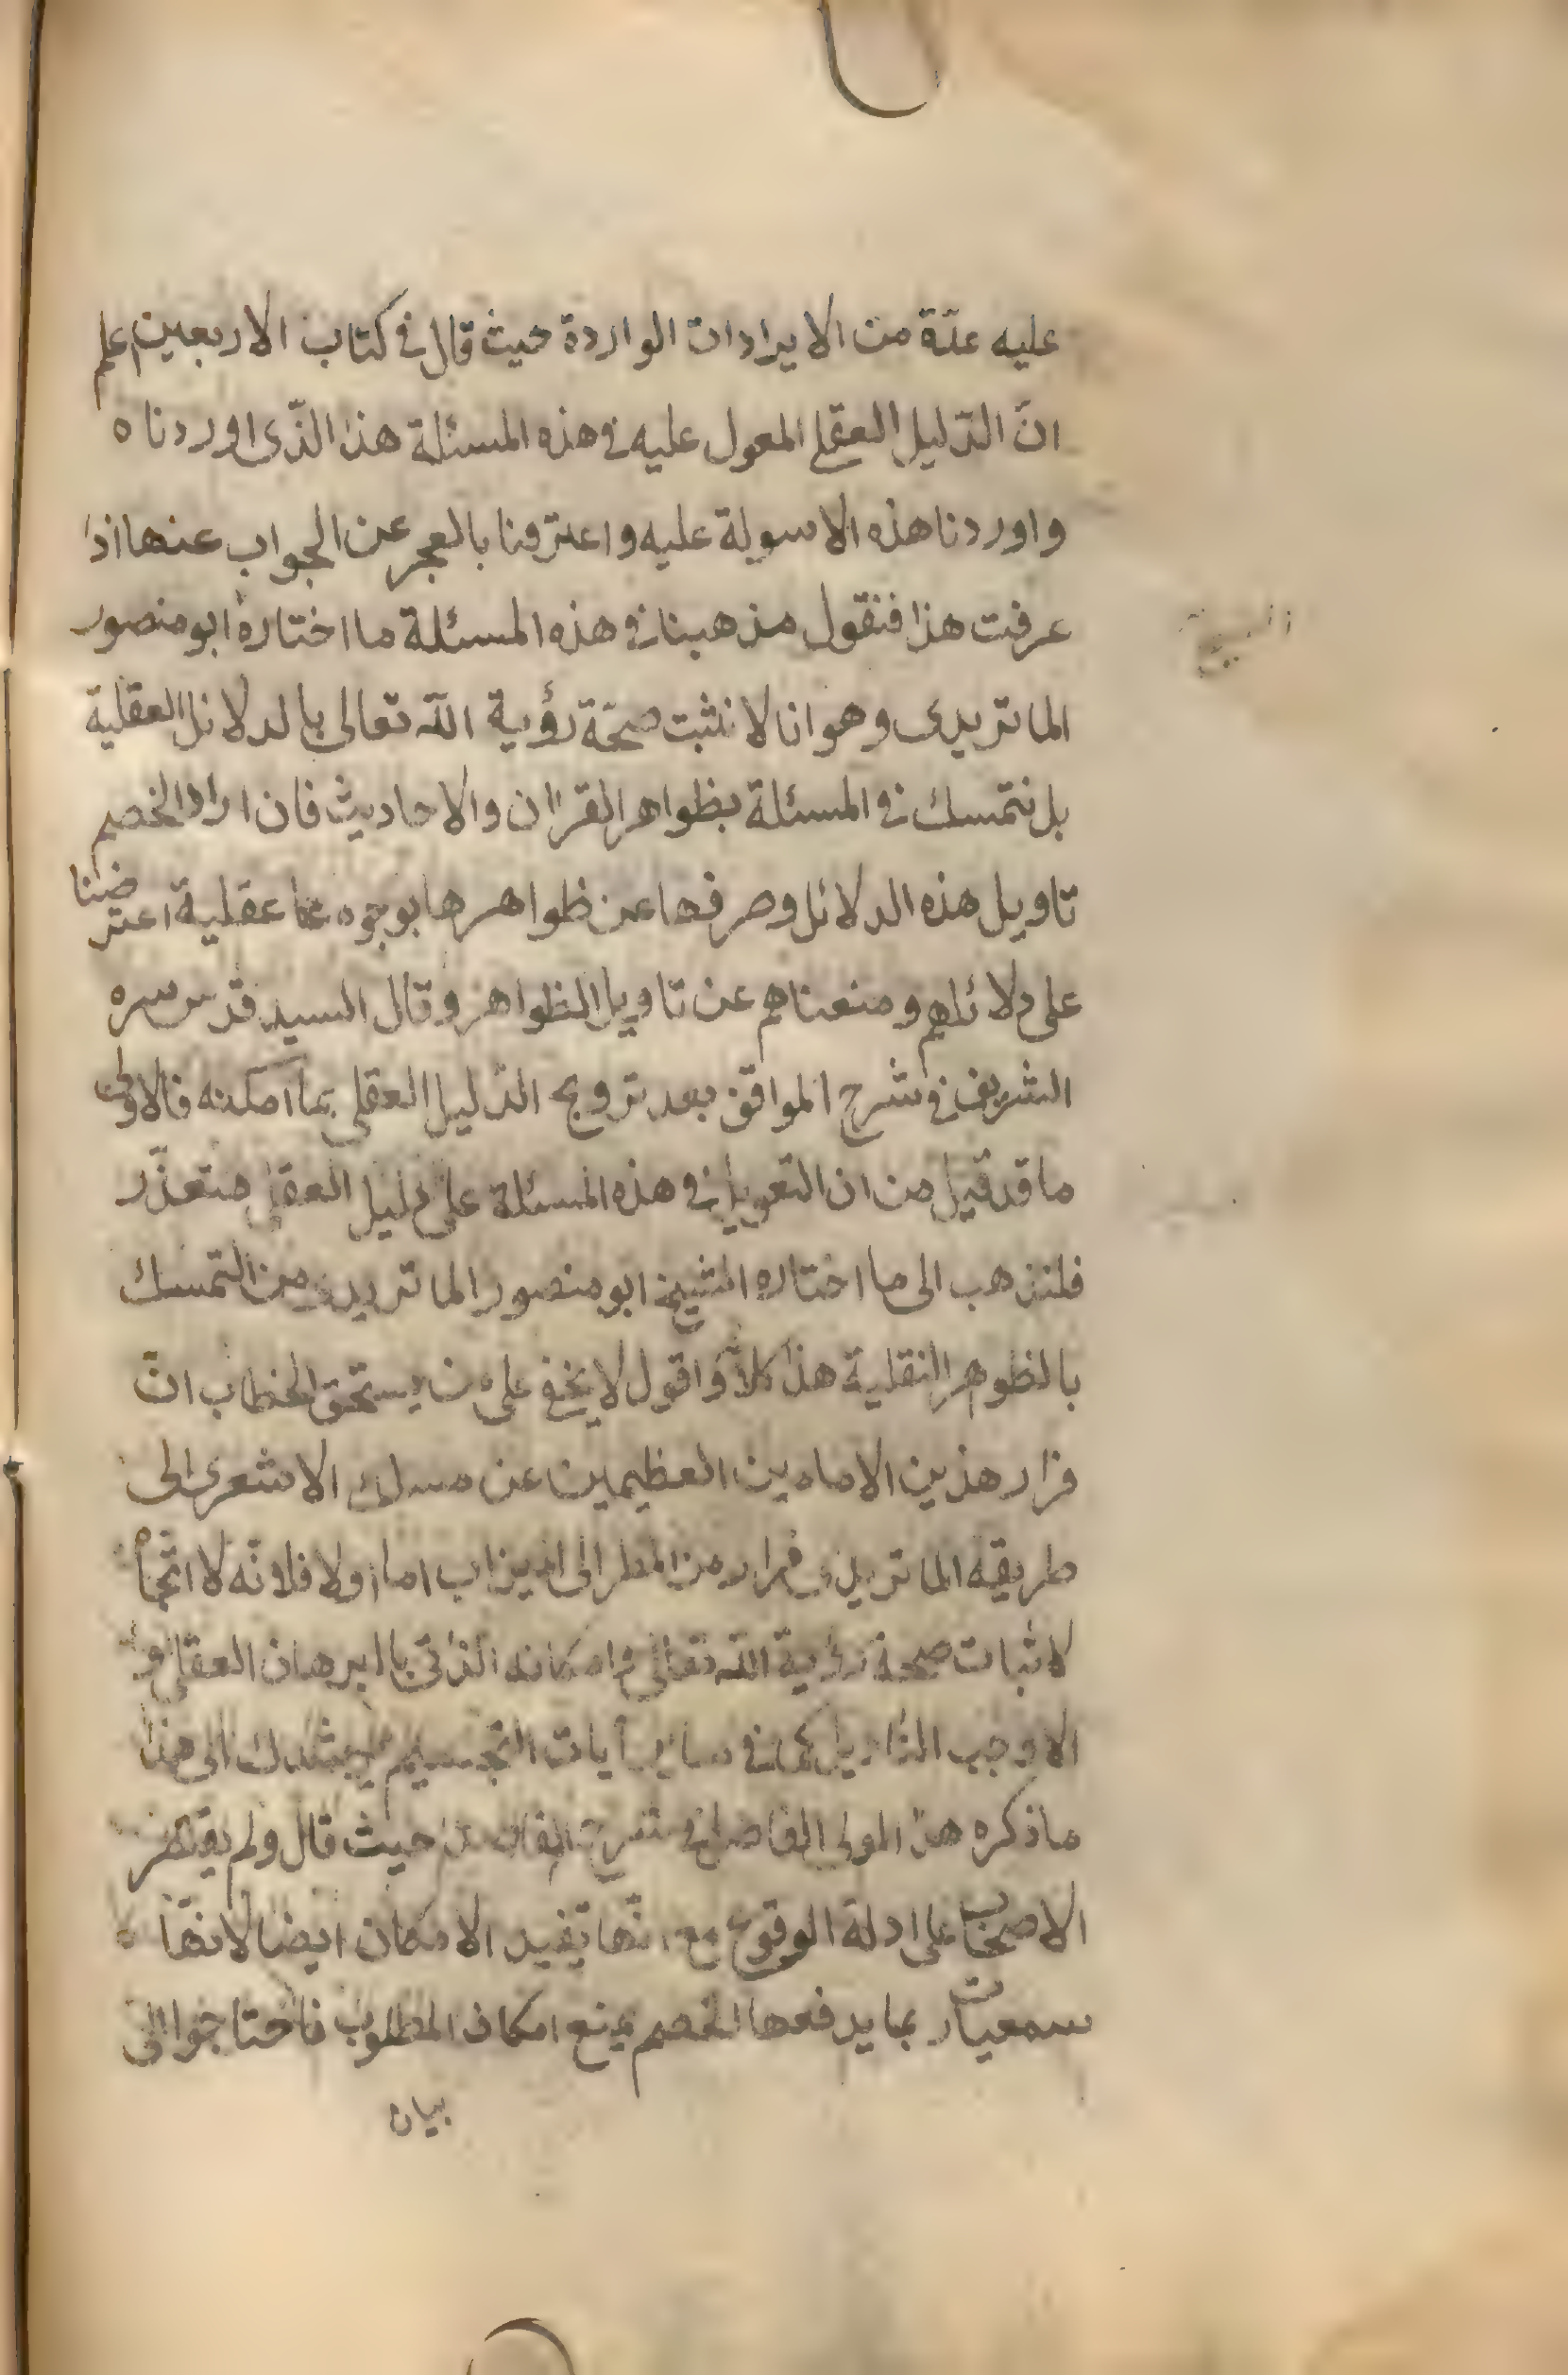 عليه عدّة من الايرادات الواردة حيث قال في كتاب الاربعين اعلم
انّ الدّليل العقلي المعول عليه في هذه المسئلة هذا الذّي اوردناه
واوردنا هذه الاسولة عليه واعترفنا بالعجز عن الجواب عنها اذا
عرفت هذا فنقول مذهبنا في هذه المسئلة ما اختاره ابو منصور
الشيخ
الماتريدي وهو انا لا نثبت صحّة رؤية الله تعالى بالدلائل العقلية
بل نتمسك في المسئلة بظواهر القرآن والاحاديث فان اراد الخصم
تاويل هذه الدلائل وصرفها عن ظواهرها بوجوه عقلية اعترضنا
على دلائلهم ومنعناهم عن تاويل الظواهر وقال السيد قدس سره
الشريف في شرح المواقف بعد ترويج الدّليل العقلي بما امكنه فالاولى
ما قد قيل من ان التعويل في هذه المسئلة على دليل العقلي متعذّر
فلنذهب الى ما اختاره الشيخ ابو منصور الماتريدي من التمسك
بالظوهر النقلية هذا كلامه واقول لا يخفى على من يستحق الخطاب انّ
فرار هذين الامامين العظيمين عن مسلك الاشعري الى
طريقه الماتريدي فرار من المطر الى الميزاب اما اولا فلانّه لا اتّجاه
لاثبات صحة رؤية الله تعالى وامكانه الذاتي بالبرهان العقلي و
الا وجب التاويل كما في ساير آيات التجسيم يرشدك الى هذا
ما ذكره هذا المولى الفاضل في شرح المقاصد حيث قال ولم يقتصر
الاصحاب على ادلة الوقوع مع انّها تفيد الامكان ايضا لانها
سمعيات ربما يدفعها الخصم بمنع امكان المطلوب فاحتاجوا الى
بيان